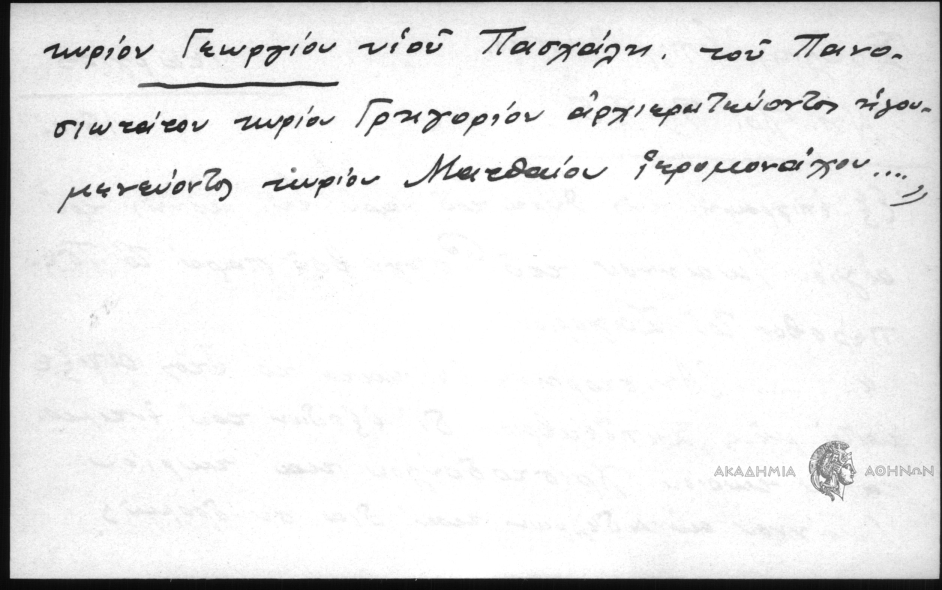 κυρίου Γεωργίου υἱοῦ Πασχάλη. τοῦ Πανο-
σιωτάτου κυρίου Γρηγορίου ἀρχιερατεύοντος ἡγου-
μενεύοντος κυρίου Ματθαίου ἱερομονάχου....»
ΑΚΑΔΗΜΙΑ ΑΘΗΝΩΝ